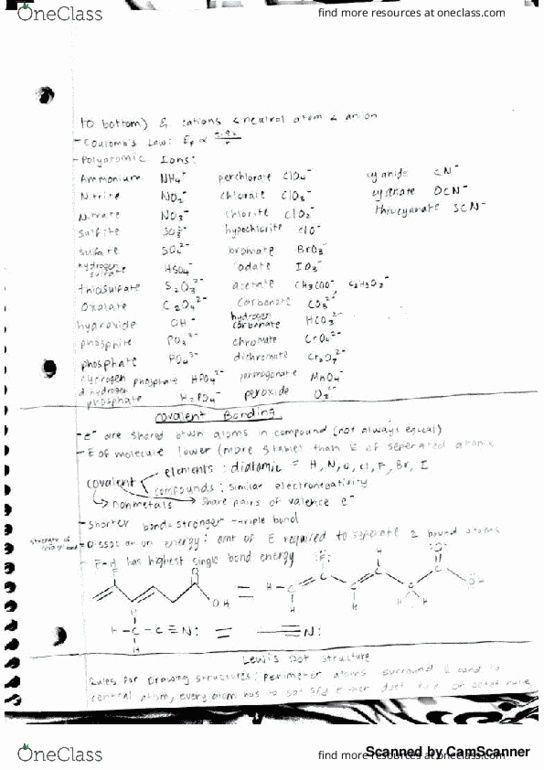 OneClass
find more resources at oneclass.com
to bottom) & cations < neutral atom < anion
- Coulomb's Law: E
- Polyatomic Ions:
Ammonium NH₄⁺ perchlorate ClO₄⁻ cyanide CN⁻
Nitrite NO₂⁻ chlorate ClO₃⁻ cyanate OCN⁻
Nitrate NO₃⁻ chlorite ClO₂⁻ thiocyanate SCN⁻
sulfite SO₃²⁻ hypochlorite ClO⁻
sulfate SO₄²⁻ bromate BrO₃⁻
hydrogen sulfate HSO₄⁻ iodate IO₃⁻
thiosulfate S₂O₃²⁻ acetate CH₃COO⁻, C₂H₃O₂⁻
Oxalate C₂O₄²⁻ carbonate CO₃²⁻
hydroxide OH⁻ hydrogen carbonate HCO₃⁻
phosphite PO₃³⁻ chromate CrO₄²⁻
phosphate PO₄³⁻ dichromate Cr₂O₇²⁻
hydrogen phosphate HPO₄²⁻ permanganate MnO₄⁻
dihydrogen phosphate H₂PO₄⁻ peroxide O₂²⁻
Covalent Bonding
- e⁻ are shared btwn atoms in compound (not always equal)
- E of molecule lower (more stable) than E of seperated atoms
covalent
elements: diatomic = H, N, O, Cl, F, Br, I
compounds: similar electronegativity
→ nonmetals → share pairs of valence e⁻
- Shorter bond = stronger → triple bond
strength of
- Dissociation energy: amt of E required to separate 2 bound atoms
- F-H has highest single bond energy
F O OH = H-C :F: H C :O: H
H-C-C≡N: = ≡N:
Lewis Dot Structure
Rules for drawing structures: Perimeter atoms surround & bond to
central atom, every atom has to satisfy either duet rule or octet rule
Scanned by CamScanner
OneClass
find more resources at oneclass.com